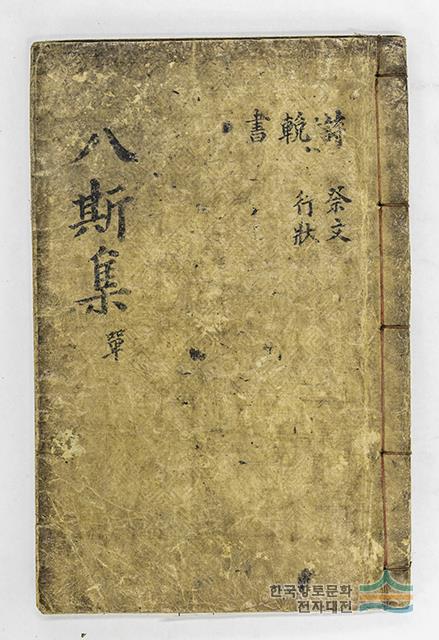 詩 祭文
輓 行狀
書
八斯集 單
한국향토문화
전자대전